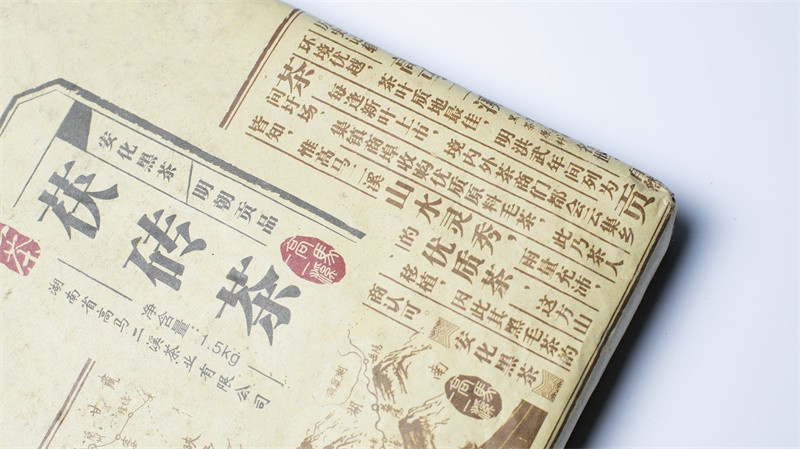 安化黑茶
明朝贡品
茯砖茶
高马二溪
净含量:1.5kg
湖南省高马二溪茶业有限公司
茶
环境优越，
茶叶质地最佳，
明洪武年间列为贡
间圩场，
每逢新叶上市，
境内外茶商们都会云集乡
皆知，
集镇商埠收购优质原料毛茶，
此乃茶人
惟高马二溪
山水灵秀，
雨量充沛，
的优质茶
这方山
移植，
因此其黑毛茶的
商认可。
安化黑茶
高马二溪
南
湖